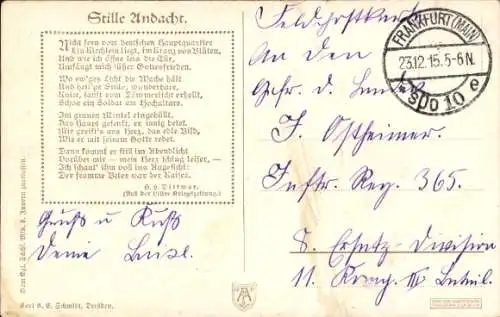 Stille Andacht.
Nicht fern vom deutschen Hauptquartier
Ein Kirchlein liegt, im Kranz von Blüten,
Und wie ich öffne leis die Tür,
Umfängt mich süßer Gottesfrieden.
Wo ew'ges Licht die Wache hält
Und heil'ge Stille, wunderbare,
Kniet, sanft vom Dämmerlicht erhellt,
Schon ein Soldat am Hochaltare.
Im grauen Mantel eingehüllt,
Das Haupt gesenkt, er innig betet.
Mir greift's ans Herz, das edle Bild,
Wie er mit seinem Gotte redet.
Dann kommt er still im Abendlicht
Vorüber mir — mein Herz schlug leiser, —
Ich schaut' ihm voll ins Angesicht:
Der fromme Beter war der Kaiser.
H. v. Dittmar.
(Aus der Liller Kriegszeitung.)
Gruß u Kuß
Deine Luise.
Karl G. E. Schmidt, Dresden.
Feldpostkarte
An den
Gefr. d. Landw.
J. Ostheimer.
Inftr. Reg. 365.
8. Ersatz-Division
11. Komp. III Batail.
FRANKFURT (MAIN)
23.12.15.5-6N.
SÜD 10 e